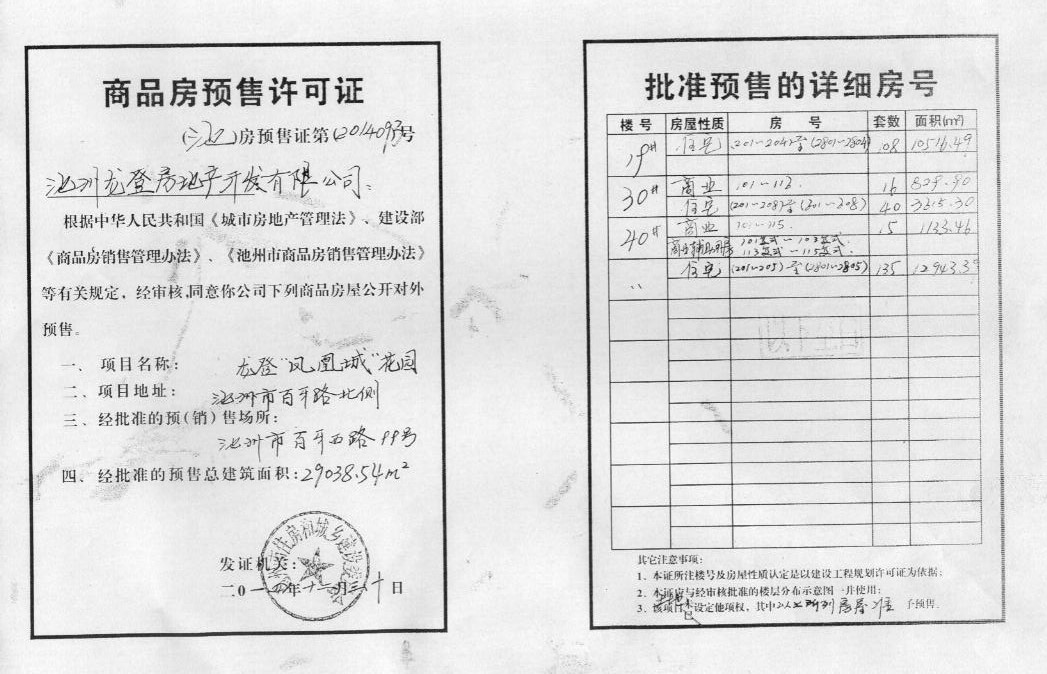 商品房预售许可证
(池)房预售证第(201409)号
池州龙登房地产开发有限公司:
根据中华人民共和国《城市房地产管理法》、建设部
《商品房销售管理办法》、《池州市商品房销售管理办法》
等有关规定，经审核,同意你公司下列商品房屋公开对外
预售。
一、项目名称: 龙登"凤凰城"花园
二、项目地址: 池州市百牙路北侧
三、经批准的预(销)售场所:
池州市百牙西路99号
四、经批准的预售总建筑面积:29038.54m²
发证机关:
二0一四年十二月三十日
批准预售的详细房号
楼号 房屋性质 房号 套数 面积(m²)
19# 住宅 (201~204)至(2801~2804) 108 10516.49
30# 商业 101~112 16 829.90
住宅 (201~208)至(201~208) 40 3215.30
40# 商业 101~115 15 1133.46
商业辅助用房 101~103
113~115
" 住宅 (201~205)至(2801~2805) 135 12943.39
其它注意事项:
1、本证所注楼号及房屋性质认定是以建设工程规划许可证为依据;
2、本证应与经审核批准的楼层分布示意图一并使用;
3、该项目 设定他项权，其中以上所列房号准予预售。